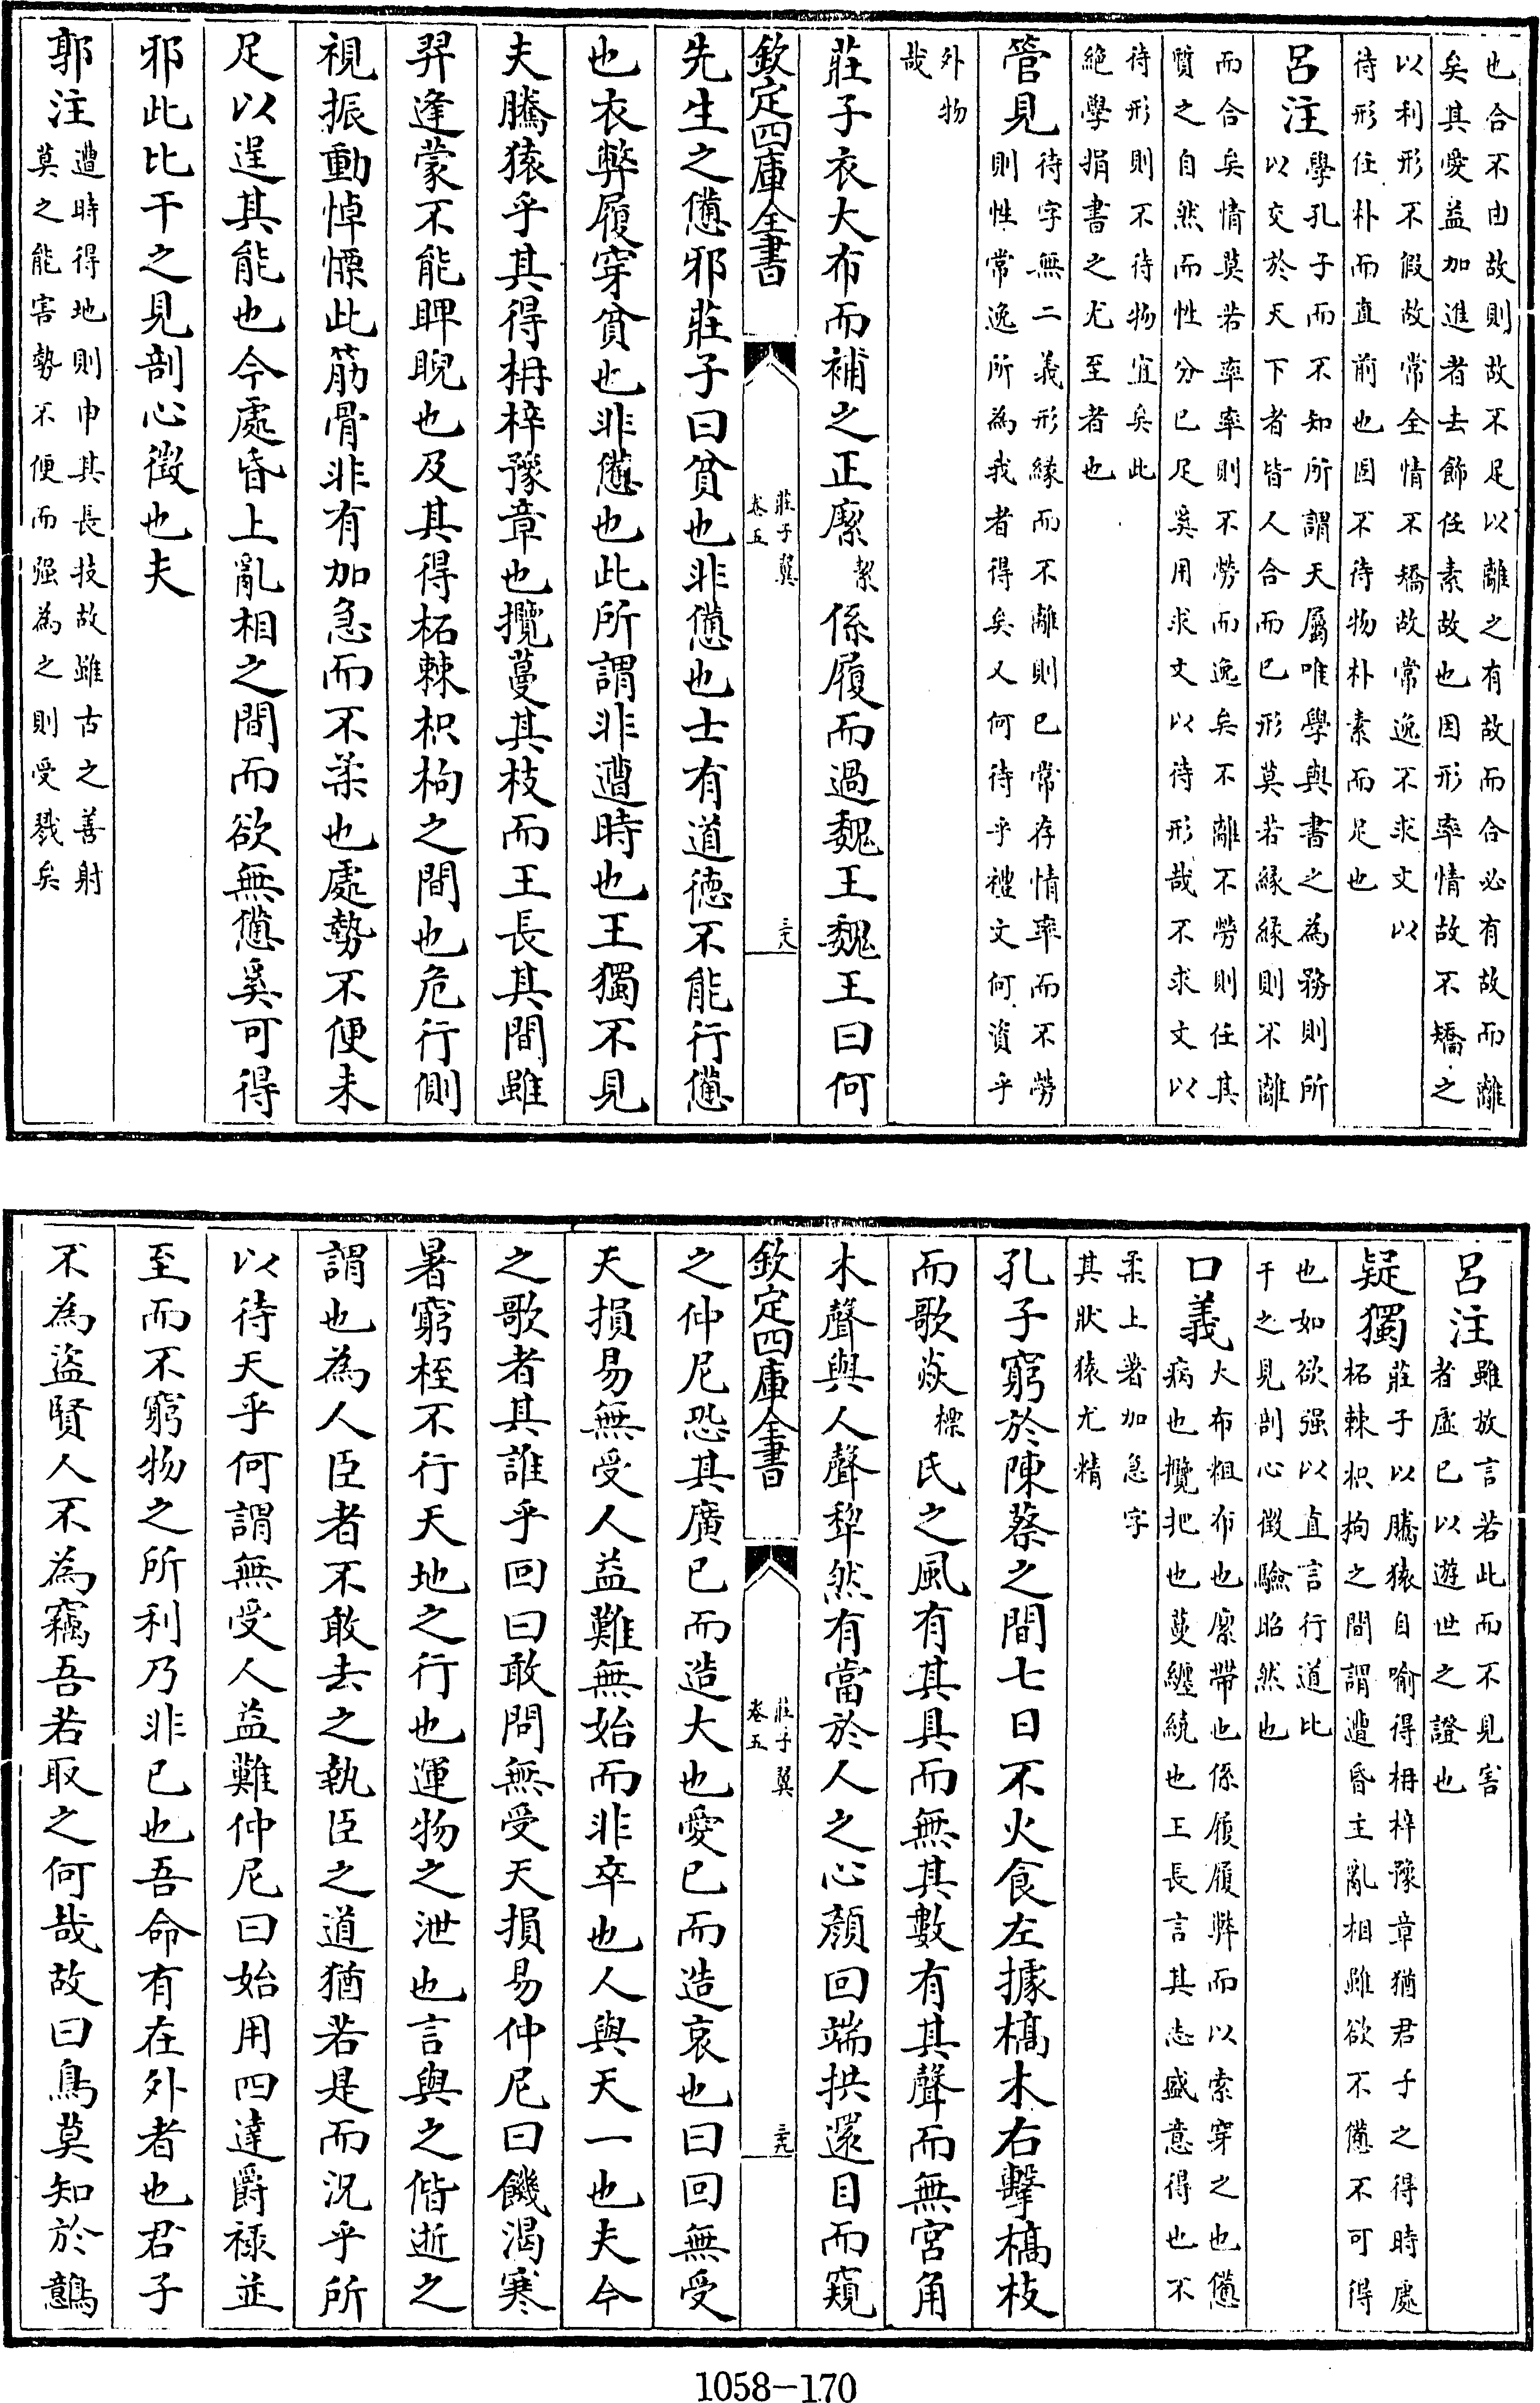 也合不由故則故不足以離之有故而合必有故而離
矣其愛益加進者去飾任素故也因形率情故不矯之
以利形不假故常全情不矯故常逸不求文以
待形任朴而直前也固不待物朴素而足也
呂注
學孔子而不知所謂天屬唯學與書之為務則所
以交於天下者皆人合而已形莫若緣緣則不離
而合矣情莫若率率則不勞而逸矣不離不勞則任其
質之自然而性分已足奚用求文以待形哉不求文以
待形則不待物宜矣此
絶學捐書之尤至者也
管見
待字無二義形緣而不離則已常存情率而不勞
則性常逸所為我者得矣又何待乎禮文何資乎
外物
哉
莊子衣大布而補之正緳絜係履而過魏王魏王曰何
欽定四庫全書
莊子翼
卷五
三八
先生之憊邪莊子曰貧也非憊也士有道德不能行憊
也衣弊履穿貧也非憊也此所謂非遭時也王獨不見
夫騰猿乎其得枏梓豫章也攬蔓其枝而王長其間雖
羿逢蒙不能眄睨也及其得柘棘枳枸之間也危行側
視振動悼慄此筋骨非有加急而不柔也處勢不便未
足以逞其能也今處昏上亂相之間而欲無憊奚可得
邪此比干之見剖心徵也夫
郭注
遭時得地則申其長技故雖古之善射
莫之能害勢不便而强為之則受戮矣
呂注
雖放言若此而不見害
者虛已以遊世之證也
疑獨
莊子以騰猿自喻得枏梓豫章猶君子之得時處
柘棘枳拘之間謂遭昏主亂相雖欲不憊不可得
也如欲强以直言行道比
干之見剖心徵驗昭然也
口義
大布粗布也緳帶也係履履弊而以索穿之也憊
病也攬把也蔓纏繞也王長言其志盛意得也不
柔上著加急字
其狀猿尤精
孔子窮於陳蔡之間七日不火食左據槁木右擊槁枝
而歌焱標氏之風有其具而無其數有其聲而無宮角
木聲與人聲犂然有當於人之心顏回端拱還目而窺
欽定四庫全書
莊子翼
卷五
三九
之仲尼恐其廣已而造大也愛已而造哀也曰回無受
天損易無受人益難無始而非卒也人與天一也夫今
之歌者其誰乎回曰敢問無受天損易仲尼曰饑渴寒
暑窮桎不行天地之行也運物之泄也言與之偕逝之
謂也為人臣者不敢去之執臣之道猶若是而況乎所
以待天乎何謂無受人益難仲尼曰始用四達爵禄並
至而不窮物之所利乃非已也吾命有在外者也君子
不為盜賢人不為竊吾若取之何哉故曰鳥莫知於鷾
1058-170